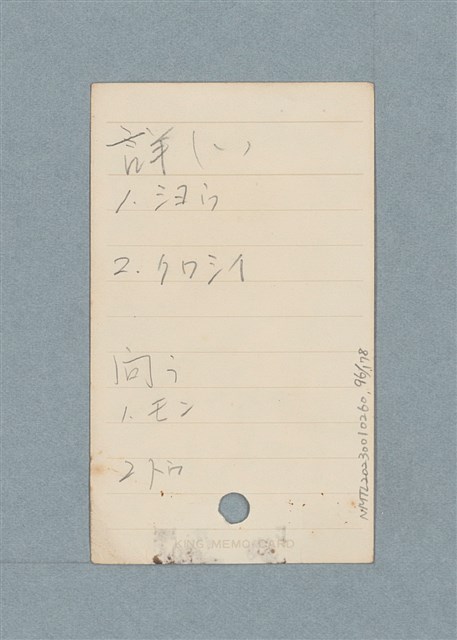 詳（い）
1. ショウ
2. クワシイ
問う
1. モン
2 トウ
KING MEMO CARD
NMTL20230010260, 96/178